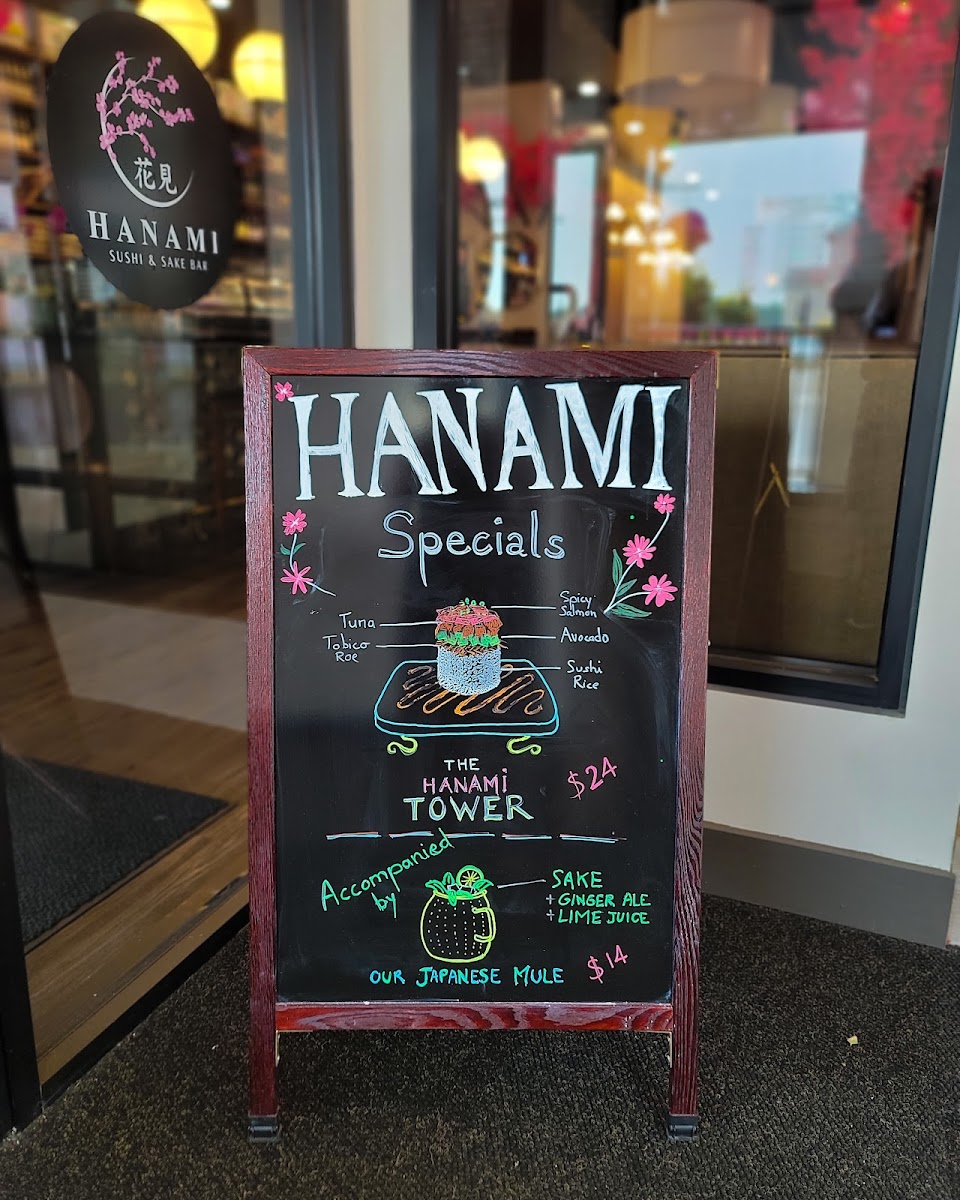 花見
HANAMI
SUSHI & SAKE BAR
HANAMI
Specials
Tuna
Tobico
Roe
Spicy
Salmon
Avocado
Sushi
Rice
THE
HANAMI
TOWER
$24
Accompanied
by
SAKE
+ GINGER ALE
+ LIME JUICE
OUR JAPANESE MULE
$14